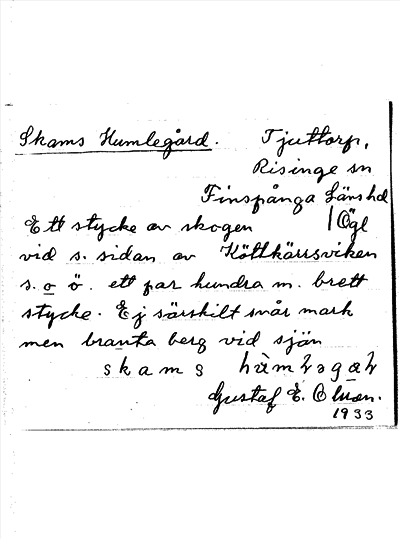 Skams Humlegård. Tjuttorp,
Risinge sn
Finspånga Länshd
Ett stycke av skogen / Ögl
vid s. sidan av Köttkärrsviken
s. o ö. ett par hundra m. brett
stycke. Ej särskilt svår mark
men branta berg vid sjön
skams
Gustaf E. Olsson.
1933